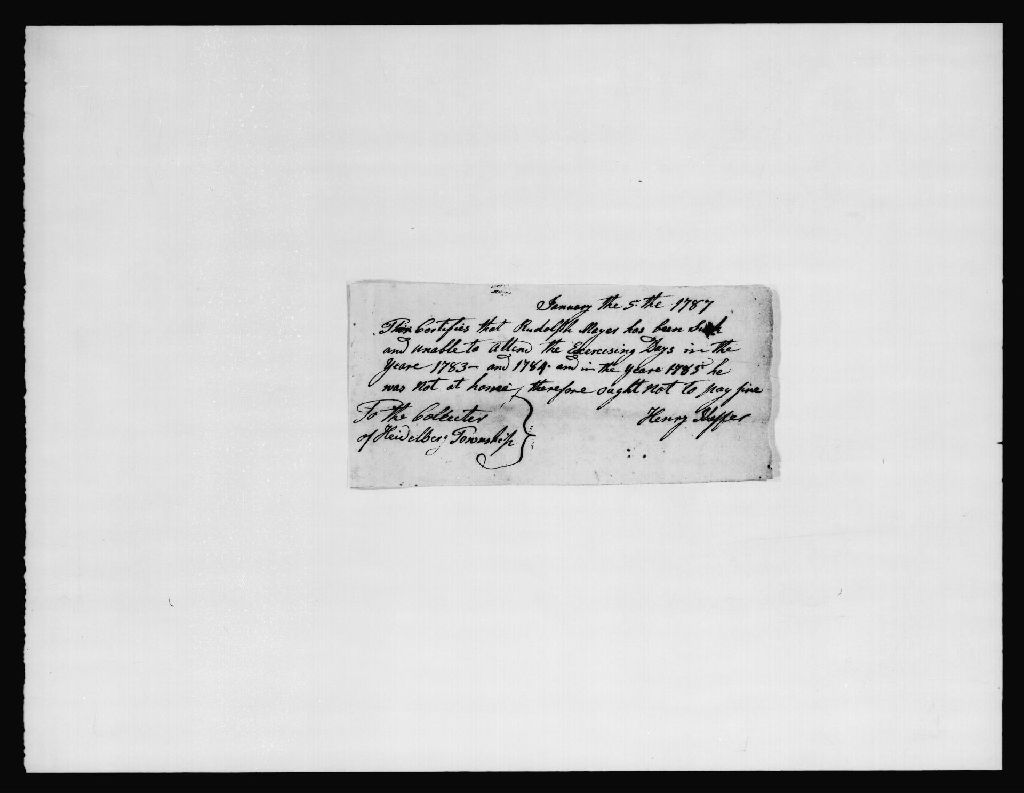 January the 5 the 1787
This Certifies that Rudolph Mayer has been Sick
and unable to attend the Exercising Days in the
Yeare 1783 - and 1784 and in the Yeare 1785 he
was not at home, therefore ought not to pay fine
To the Collecter
of Heidelberg Township
Henry